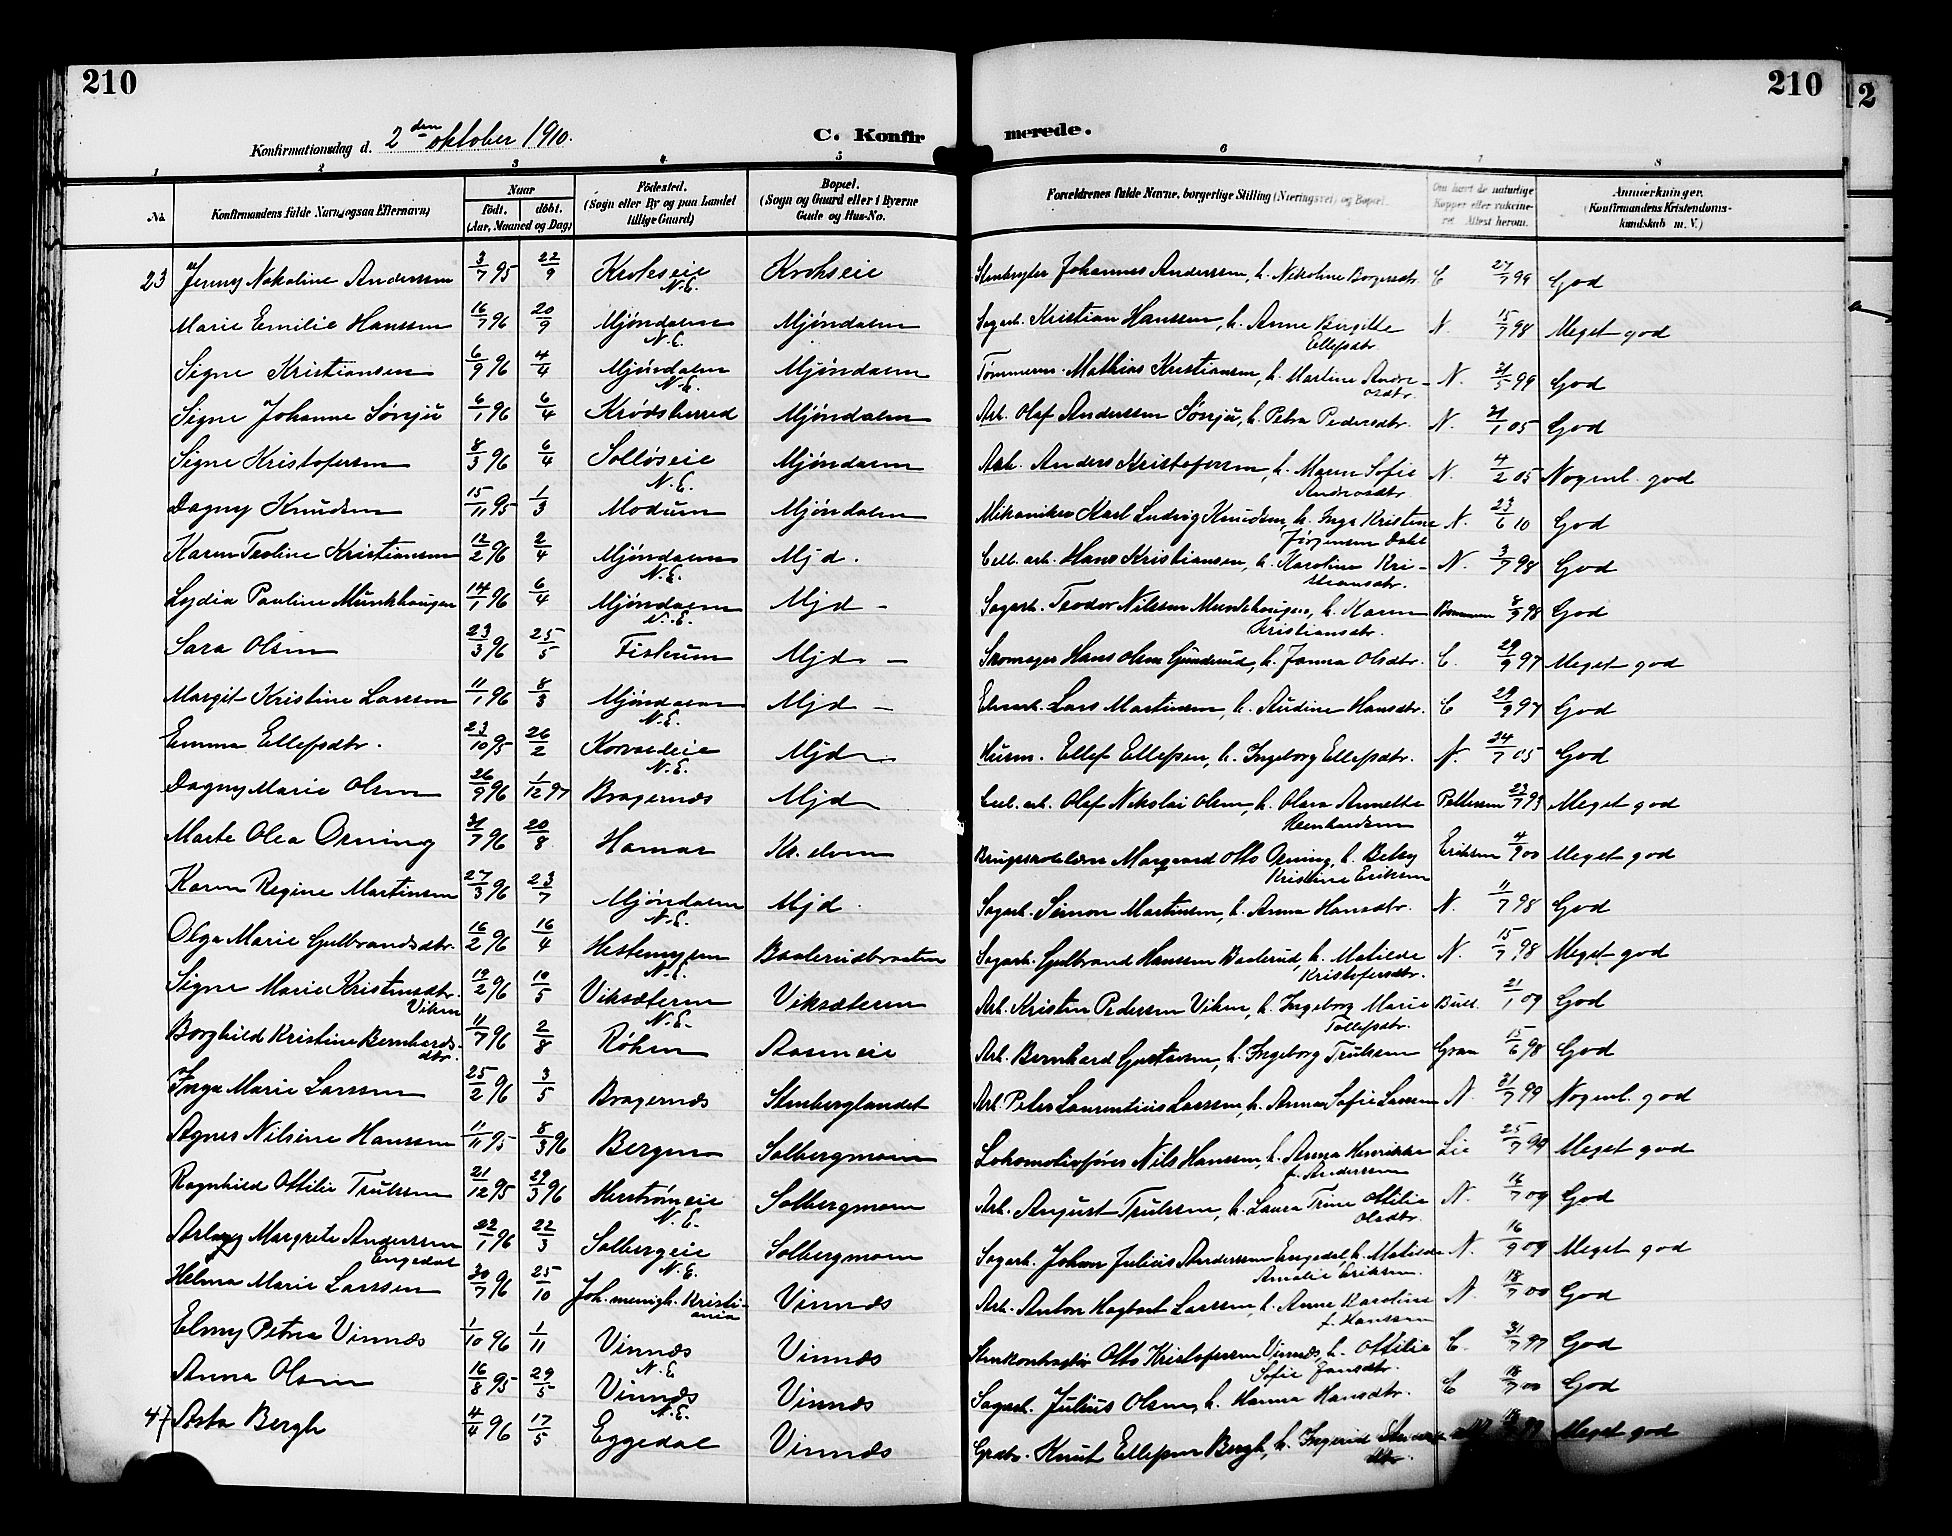 210
210
2
Konfirmationsdag d. 2den oktober 1910.
C. Konfirmerede.
1 2 3 4 5 6 7 8
No. Konfirmandens fulde Navn (ogsaa Efternavn) Naar Födt. döbt. (Aar, Maaned og Dag) Födested. (Sogn eller By og paa Landet tillige Gaard) Bopæl. (Sogn og Gaard eller i Byerne Gade og Hus-No. Forældrenes fulde Navne, borgerlige Stilling (Næringsvei) og Bopæl. Om havt de naturlige Kopper eller vakcineret. Attest herom. Anmærkninger. (Konfirmandens Kristendomskundskab m. V.)
23 Jenny Nikoline Andersen 3/7 95 22/9 Krokseie N.E. Krokseie Stenbryter Johannes Andersen, h. Nikoline Borgersdtr. C 27/7 99 God
Marie Emilie Hanssen 16/7 96 20/9 Mjöndalen N.E. Mjöndalen Sagarb. Kristian Hanssen, h. Anne Birgitte Ellefsdtr. N. 15/7 98 Meget god
Signe Kristiansen 6/9 96 4/4 Mjöndalen N.E. Mjöndalen Tömmerm. Mathias Kristiansen, h. Martine Andreasdtr. N. 31/5 99 God
Signe Johanne Sönju 6/1 96 6/4 Krödsherred Mjöndalen Arb. Olaf Anderssen Sönju, h. Petra Pedersdtr. N. 31/1 05 God
Signe Kristofersen 8/3 96 6/4 Sollöseie N.E. Mjöndalen Arb. Anders Kristofersen, h. Maren Sofie Andreasdtr. N. 4/2 05 Nogenl. god
Dagny Knudsen 15/11 95 1/3 Modum Mjöndalen Mekaniker Karl Ludvig Knudsen, h. Inga Kristine Jörgensen Dahl N. 23/6 10 God
Karen Teoline Kristiansen 12/2 96 2/4 Mjöndalen N.E. Mjd. Cell. arb. Hans Kristiansen, h. Karoline Kristiansdtr. N. 3/7 98 God
Lydia Pauline Munkhaugen 14/1 96 6/4 Mjöndalen N.E. Mjd - Sagarb. Teodor Nilssen Munkhaugen, h. Karen Kristiansdtr. 8/9 98 God
Sara Olsen 23/3 96 25/5 Fiskum Mjd. - Skomager Hans Olsen Gunderud, h. Janna Olsdtr. C. 29/9 97 Meget god
Margit Kristine Larssen 11/1 96 8/3 Mjöndalen N.E. Mjd - Lars Martinsen, h. Audine Hansdtr. C 29/9 97 God
Emma Ellefsdtr. 23/10 95 26/2 N.E. Mjd Husm. Ellef Ellefsen, h. Ingeborg Ellefsdtr. N. 24/7 05 God
Dagny Marie Olsen 26/9 96 1/12 97 Bragernæs Mjd Cell. arb. Olaf Nikolai Olsen, h. Olava Annette Reinhardsen Pettersen 23/7 98 Meget god
Marte Olea Orning 31/7 96 20/8 Hamar Kr. elven Margvard Otto Orning, h. Betsy Kristine Eriksen Eriksen 4/9 00 Meget god
Karen Regine Martinsen 27/3 96 23/7 Mjöndalen N.E. Mjd. Sagarb. Simon Martinsen, h. Anna Hansdtr. N. 11/7 98 God
Olga Marie Gulbrandsdtr. 16/2 96 16/4 Hestemyren N.E. Baalerudbraaten Sagarb. Gulbrand Hanssen Baalerud, h. Matilde Kristofersdtr. N. 15/7 98 Meget god
Signe Marie Kristensdtr. Viken 19/2 96 10/5 Viksæteren N.E. Viksæteren Arb. Kristen Pedersen Viken, h. Ingeborg Marie Tollefsdtr. Bull 21/1 09 God
Borghild Kristine Bernhardsdtr. 11/7 96 2/8 Röken Aaseneie Arb. Bernhard Gustavsen, h. Ingeborg Trulssen Gran 15/6 98 God
Inga Marie Larssen 25/2 96 3/5 Bragernæs Stenberglandet Arb. Peter Laurentius Larssen, h. Anna Sofie Larssen N. 31/7 99 Nogenl. god
Agnes Nilsine Hanssen 11/11 95 8/3 96 Bergen Solbergmoen Lokomotivförer Nils Hanssen, h. Anna Henrikke f. Anderssen Lie 25/7 99 Meget god
Ragnhild Ottilie Trulssen 21/12 95 29/3 96 Herströmeie N.E. Solbergmoen Arb. August Trulssen, h. Laura Trine Ottilie Olsdtr. N. 16/7 09 God
Aslaug Margrete Anderssen Engedal 22/1 96 22/3 Solbergeie N.E. Solbergmoen Sagarb. Johan Julius Anderssen Engedal, h. Matilde Amalie Eriksen. N. 16/9 09 Meget god
Helma Marie Larssen 30/7 96 25/10 Joh. menigh. Kristiania Vinnæs Arb. Anton Hagbart Larssen, h. Anne Karoline f. Hanssen N. 18/7 00 God
Elmy Petra Vinnæs 1/10 96 1/11 Vinnæs N.E Vinnæs Stenkontraktör Otto Kristofersen Vinnæs, h. Ottilie Sofie Jansdtr. C. 31/7 97 God
Anna Olsen 16/8 95 29/5 Vinnæs N.E. Vinnæs Sagarb. Julius Olsen, h. Hanna Hansdtr. C 18/7 00 God
47 Asta Bergh 4/4 96 17/5 Eggedal Vinnæs Grdbr. Knut Ellefsen Bergh, h. Ingerid Meget god